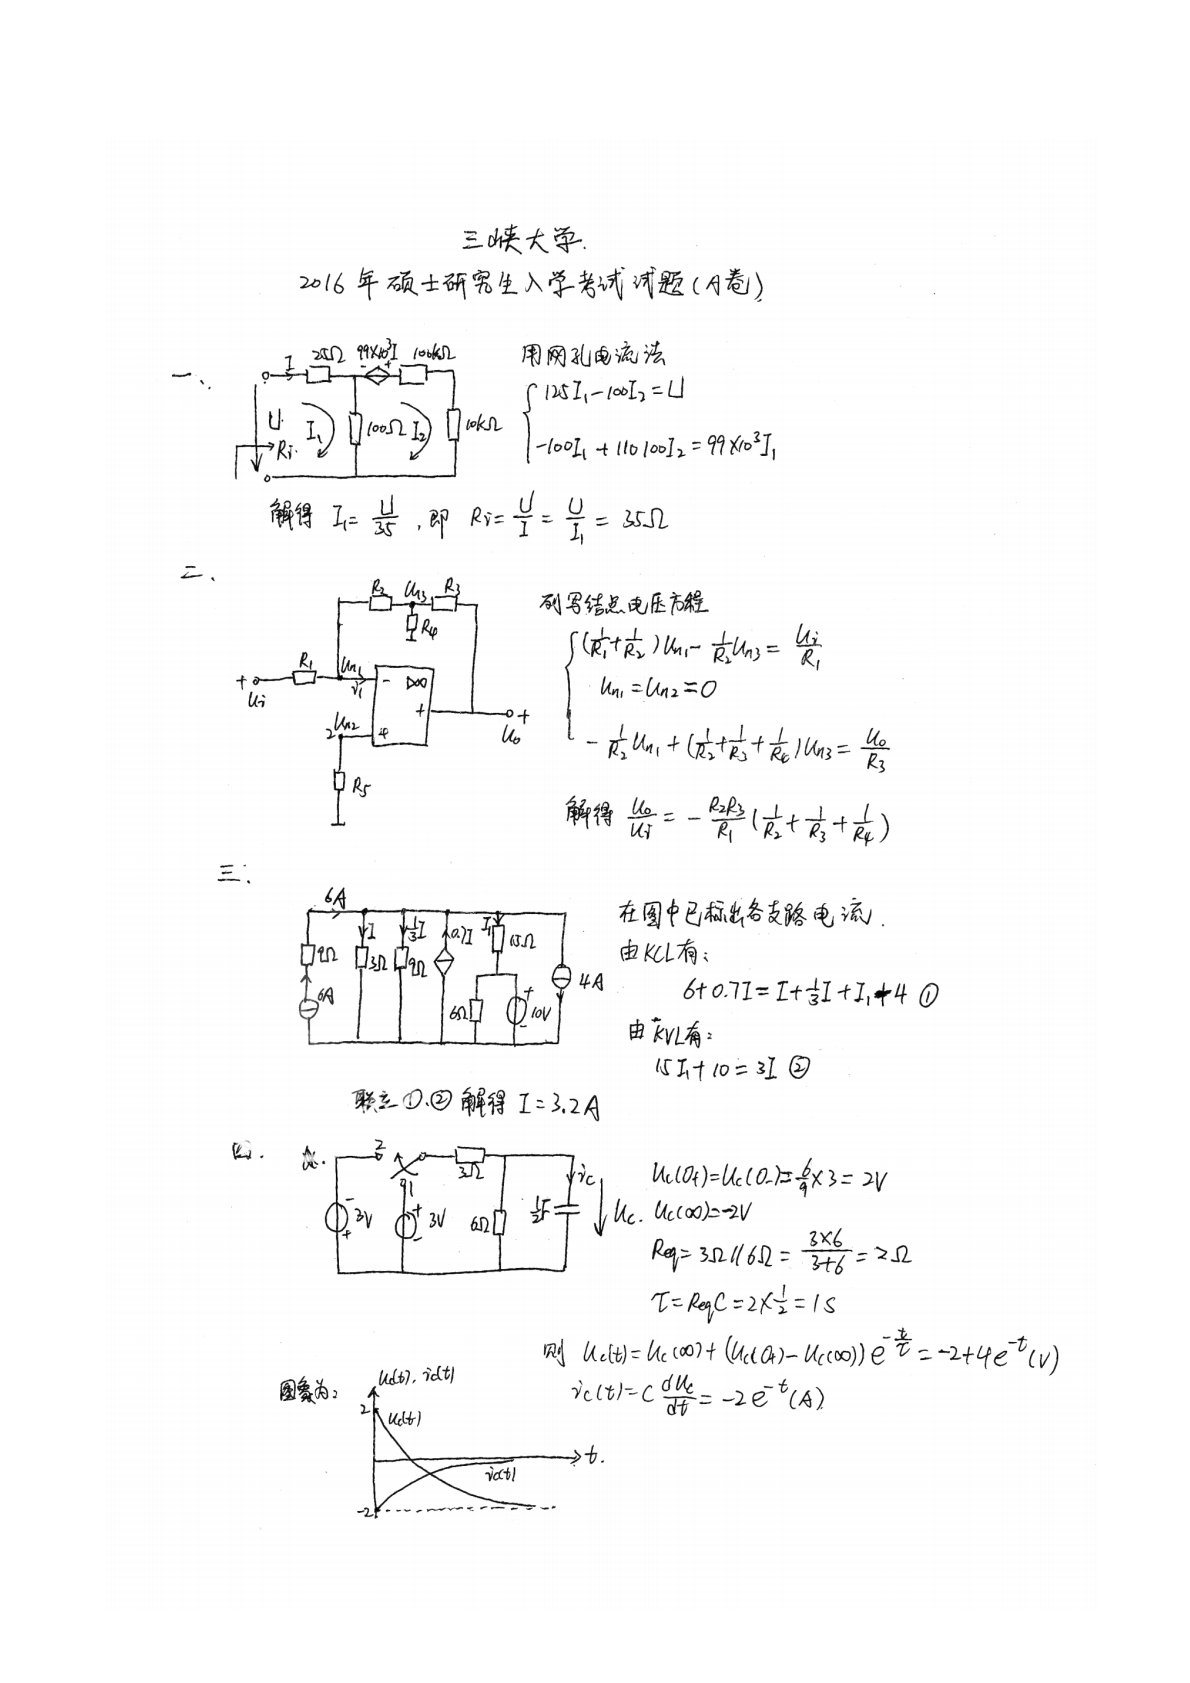 三峡大学.
2016年硕士研究生入学考试试题(A卷)
一、
I 25Ω 99×10³I 100kΩ
U Ri I₁ 100Ω I₂ 10kΩ
用网孔电流法
125I₁-100I₂=U
-100I₁+110100I₂=99×10³I₁
解得 I₁=U/35,即 Ri=U/I=U/I₁=35Ω
二、
R₂ Un3 R₃
R₄
R₁ Un1 i₁ - ▷∞
+ Ui
2 Un2 + + Uo +
R₅
列写结点电压方程
(1/R₁+1/R₂)Un1-1/R₂Un3=Ui/R₁
Un1=Un2=0
-1/R₂Un1+(1/R₂+1/R₃+1/R₄)Un3=Uo/R₃
解得 Uo/Ui=-R₂R₃/R₁(1/R₂+1/R₃+1/R₄)
三、
6A
9Ω I 3Ω 1/3I 9Ω 0.7I I₁ 15Ω
6A 6Ω + 10V - 4A
在图中已标出各支路电流.
由KCL有:
6+0.7I=I+1/3I+I₁+4 ①
由KVL有:
15I₁+10=3I ②
联立①、②解得 I=3.2A
四.
2 3Ω ic
1
- 3V + + 3V - 6Ω 1/2F Uc.
Uc(0+)=Uc(0-)=6/9×3=2V
Uc(∞)=-2V
Req=3Ω//6Ω=3×6/3+6=2Ω
τ=ReqC=2×1/2=1s
则 Uc(t)=Uc(∞)+(Uc(0+)-Uc(∞))e^-t/τ=-2+4e^-t(V)
ic(t)=C dUc/dt=-2e^-t(A)
图象为:
Uc(t),ic(t)
2 Uc(t)
t.
ic(t)
-2